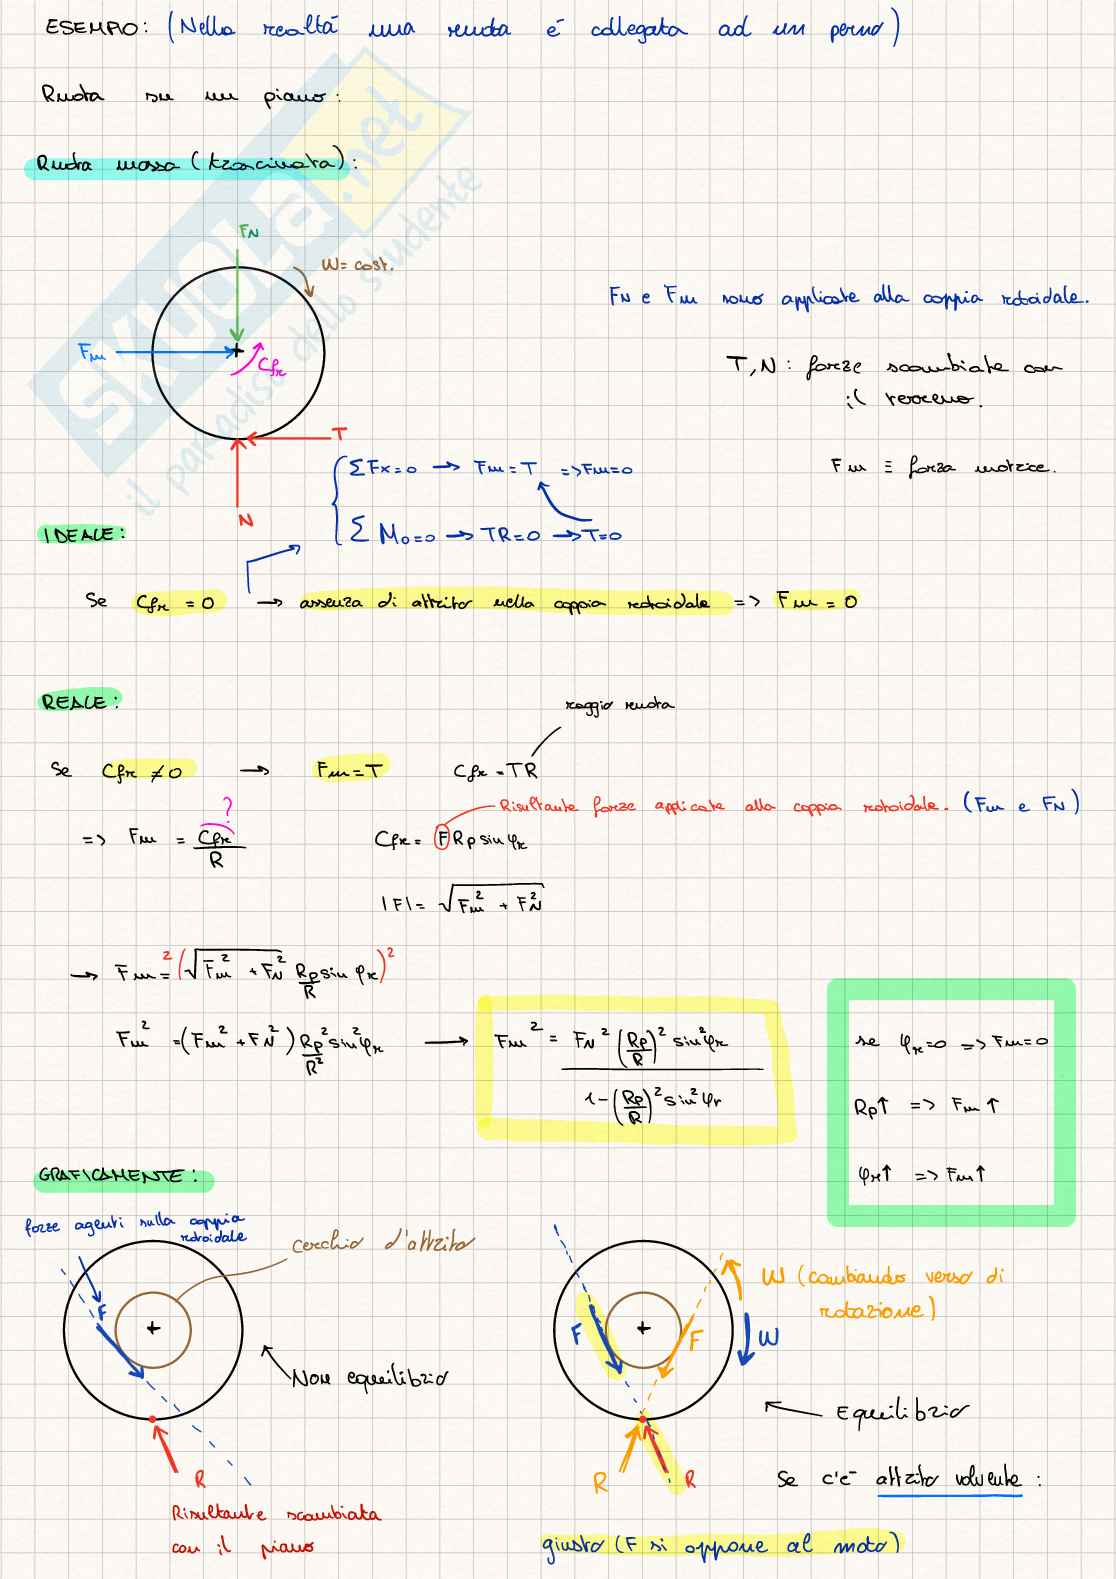 ESEMPIO: (Nella realtà una ruota é collegata ad un perno)
Ruota su un piano:
Ruota mossa (trascinata):
FN
W = cost.
FN e Fm sono applicate alla coppia rotoidale.
Fm
Cfr
T, N: forze scambiate con
il terreno.
T
ΣFx=0 → Fm=T => Fm=0
Fm ≡ forza motrice.
N
IDEALE:
ΣMo=0 → TR=0 → T=0
Se Cfr = 0 → assenza di attrito nella coppia rotoidale => Fm = 0
REALE:
raggio ruota
Se Cfr ≠ 0 → Fm=T Cfr = TR
?
Risultante forze applicate alla coppia rotoidale. (Fm e FN)
=> Fm = Cfr/R Cfr = F Rp sin φr
|F| = √(Fm² + FN²)
→ Fm² = (√(Fm² + FN²) Rp/R sin φr)²
Fm² = (Fm² + FN²) Rp²/R² sin²φr → Fm² = FN² (Rp/R)² sin²φr / 1-(Rp/R)² sin²φr
se φr=0 => Fm=0
Rp↑ => Fm↑
φr↑ => Fm↑
GRAFICAMENTE:
forze agenti sulla coppia
rotoidale
cerchio d'attrito
F
Non equilibrio
R
Risultante scambiata
con il piano
W (cambiando verso di
rotazione)
F
F
W
Equilibrio
R
R
Se c'é attrito volvente:
giusto (F si oppone al moto)
SKUOLA.net
il paradiso dello studente